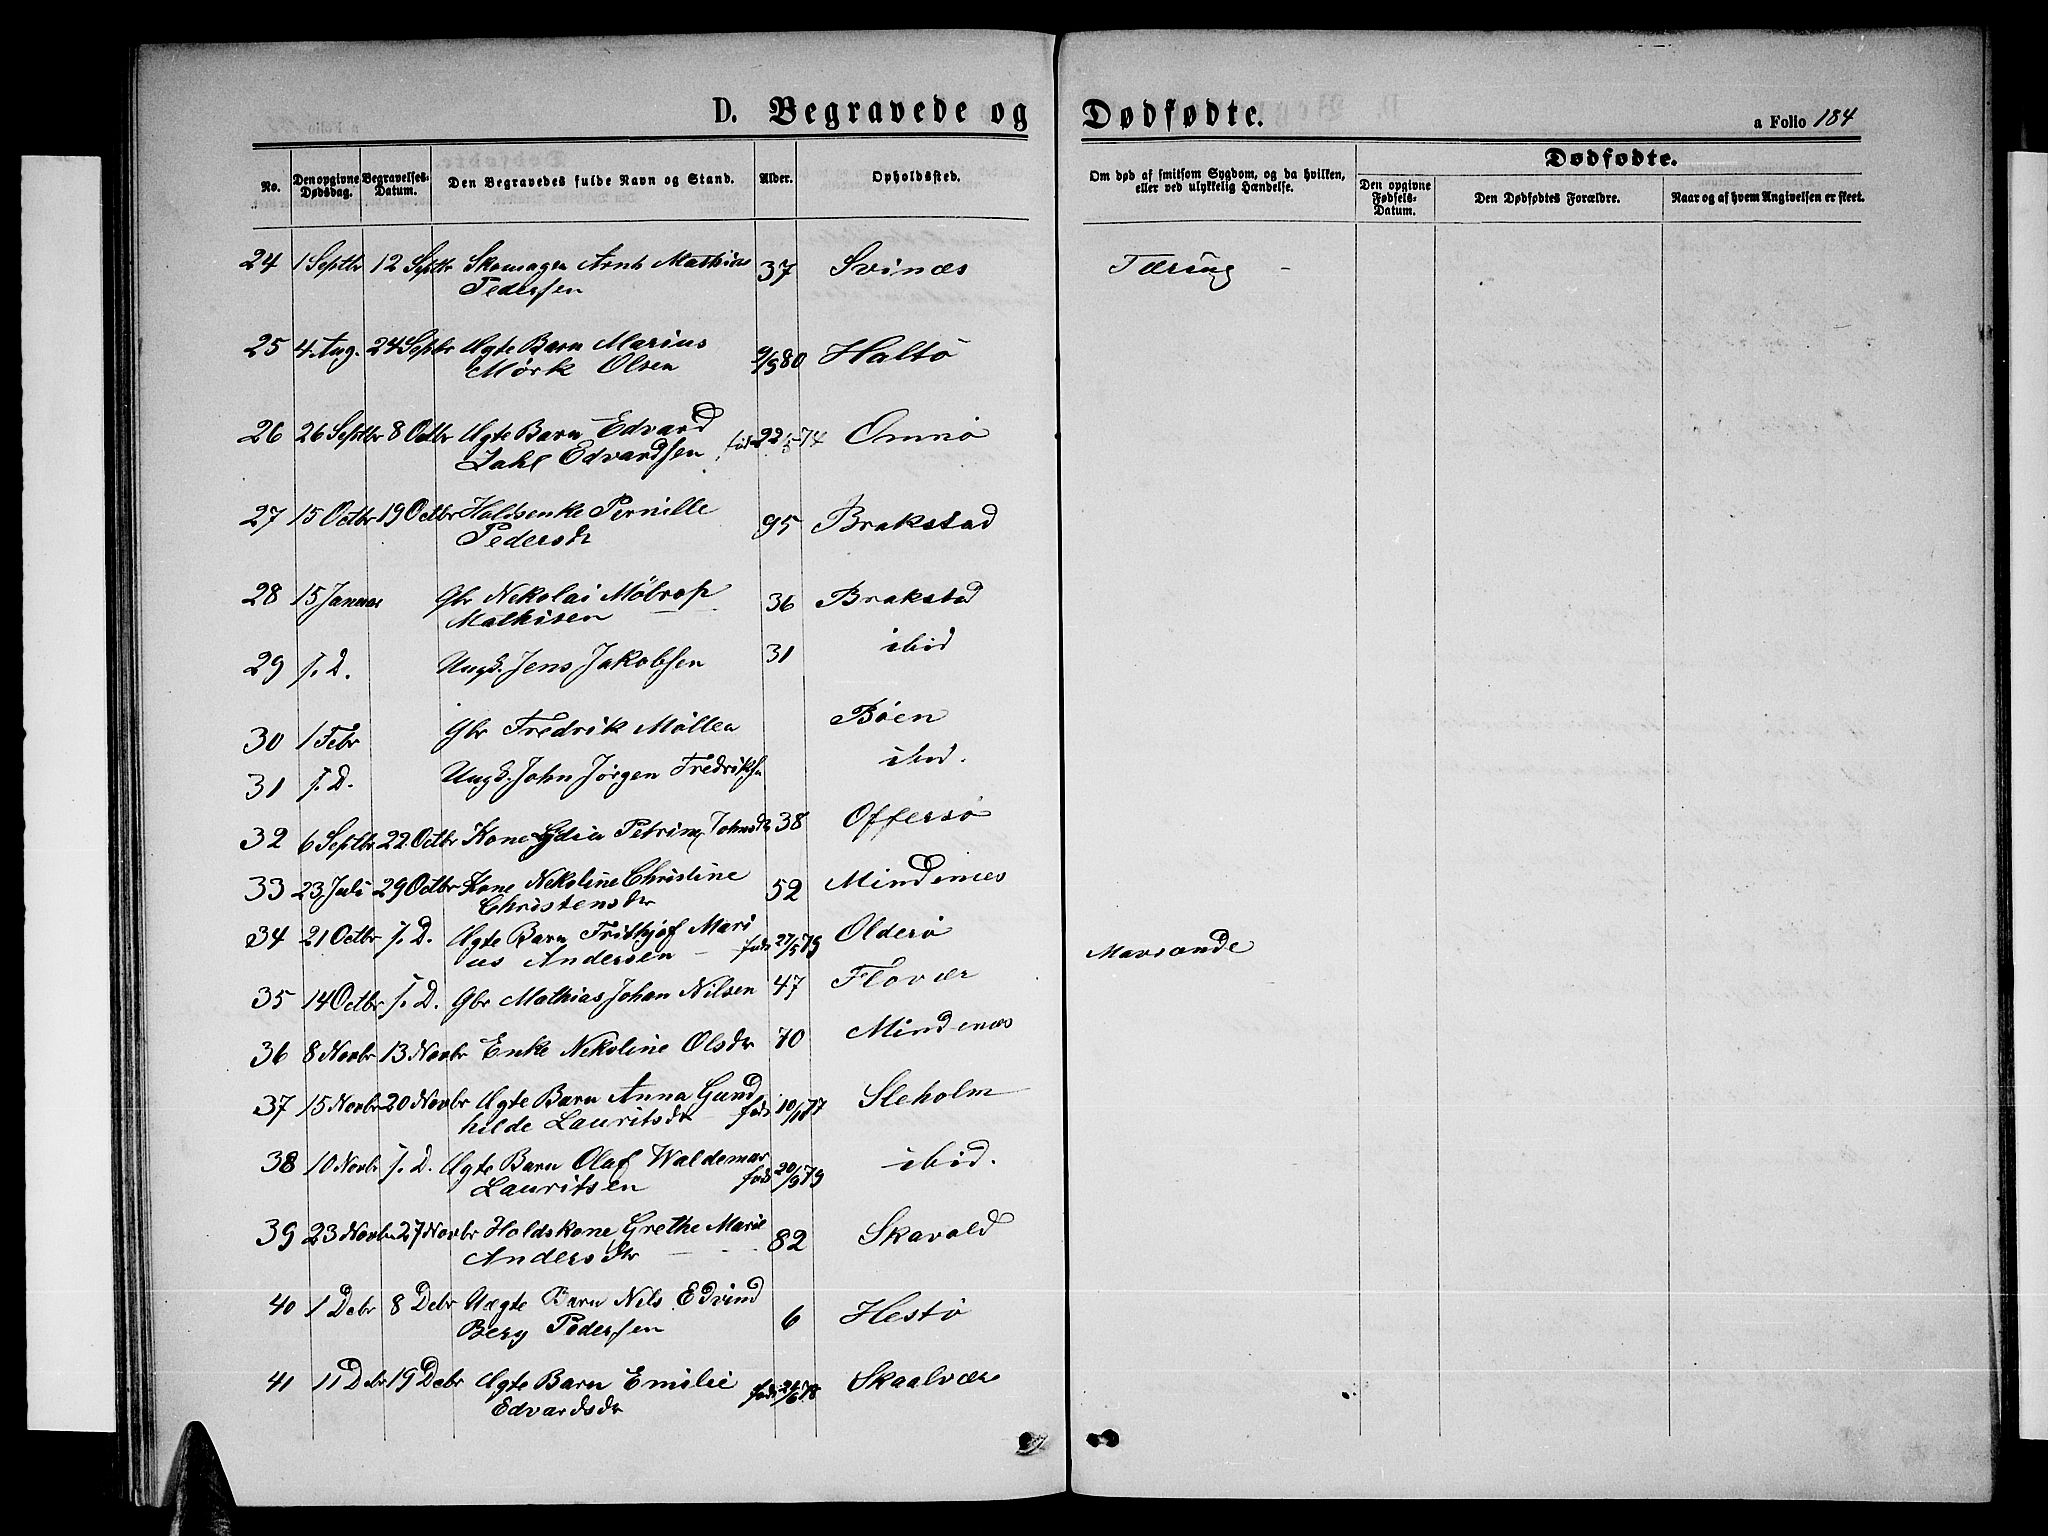 D. Begravede og Dødfødte.
a Folio 184
No. Den opgivne Dødsdag. Begravelses-Datum. Den Begravedes fulde Navn og Stand. Alder. Opholdssted. Om død af smitsom Sygdom, og da hvilken, eller ved ulykkelig Hændelse. Dødfødte. Den opgivne Fødsels-Datum. Den Dødfødtes Forældre. Naar og af hvem Angivelsen er skeet.
24 1 Septbr 12 Septbr Skomager Arnt Mathias 37 Svinæs Tæring
Pedersen
25 4 Aug. 24 Septbr Ægte Barn Marius 9/3 80 Haltö
Mörk Olsen
26 26 Septbr 8 Octbr Ægte Barn Edvard Omnö
Dahl Edvardsen
27 15 Octbr 19 Octbr Holdsenke Pernille 95 Brakstad
Pedersdr
28 15 Januar Gbr Nekolai Möbrop 36 Brakstad
Mathisen
29 s. D. Ungk. Jens Jakobsen 31 ibid
30 1 Febr Gbr Fredrik Möller Böen
31 s. D. Ungk. John Jörgen Fredriksen ibid.
32 6 Septbr 22 Octbr Kone Lydia Petrine Johnsdr 38 Offersö
33 23 Juli 29 Octbr Kone Nekoline Christine 52 Mindenæs
Christensdr
34 21 Octbr s. D. Ægte Barn Frithjof Mari födt 27/5 79 Olderö Mavsonde
us Andersen
35 14 Octbr s. D. Gbr Mathias Johan Nilsen 47 Flovær
36 8 Novbr 13 Novbr Enke Nekoline Olsdr 70 Mindenæs
37 15 Novbr 20 Novbr Ægte Barn Anna Gund Sleholm
hilde Lauritsdr födt 10/1 77
38 10 Novbr s. D. Ægte Barn Olaf Waldemar födt 20/9 79 ibid.
Lauritsen
39 23 Novbr 27 Novbr Holdskone Grethe Marie 82 Skavold
Andersdr
40 1 Debr 8 Debr Uægte Barn Nils Edvind 6 Hestö
Berg Pedersen
41 11 Debr 19 Debr Ægte Barn Emilie Skaalvær
Edvardsdr